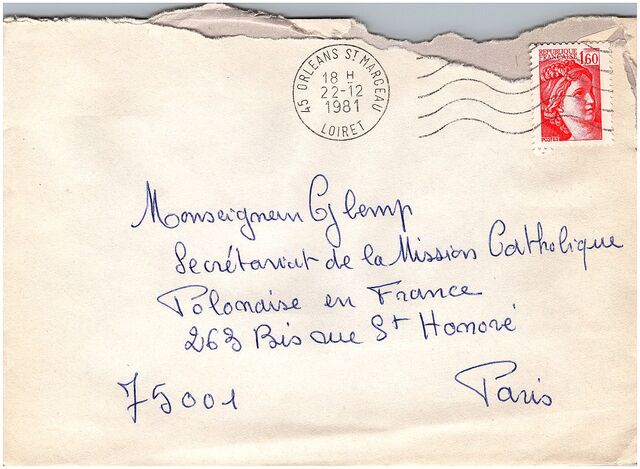 45 ORLEANS ST MARCEAU
18 H
22-12
1981
LOIRET
REPUBLIQUE
FRANCAISE
1,60
POSTES
Monseigneur Gjlemp
Secrétariat de la Mission Catholique
Polonaise en France
263 Bis rue St Honoré
75001 Paris